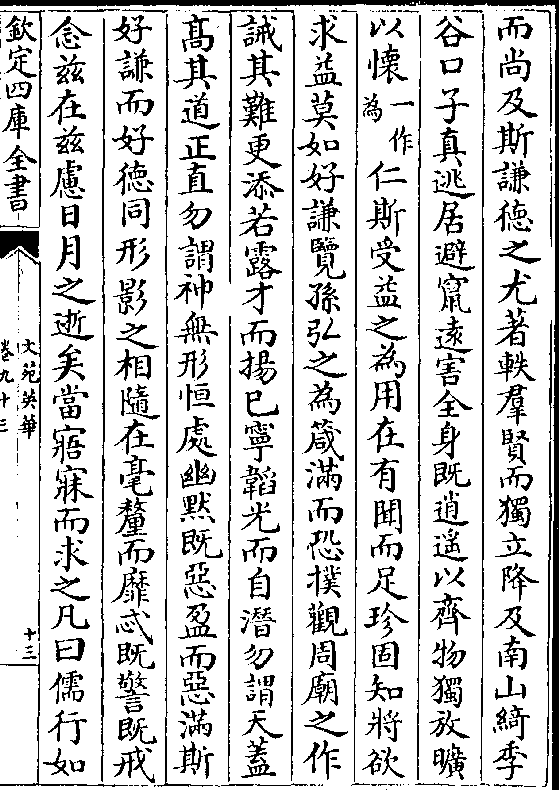 而尚及斯謙德之尤著軼羣賢而獨立降及南山綺季
谷口子真逃居避竄遠害全身既逍遙以齊物獨放曠
以懷一作為仁斯受益之為用在有聞而足珍固知將欲
求益莫如好謙覽孫弘之為箴滿而恐撲觀周廟之作
誡其難更添若露才而揚已寧韜光而自潛勿謂天蓋
髙其道正直勿謂神無形恒處幽默既惡盈而惡滿斯
好謙而好徳同形影之相隨在毫釐而靡忒既警既戒
念兹在兹慮日月之逝矣當寤寐而求之凡曰儒行如
欽定四庫全書
文苑英華
卷九十三
十三